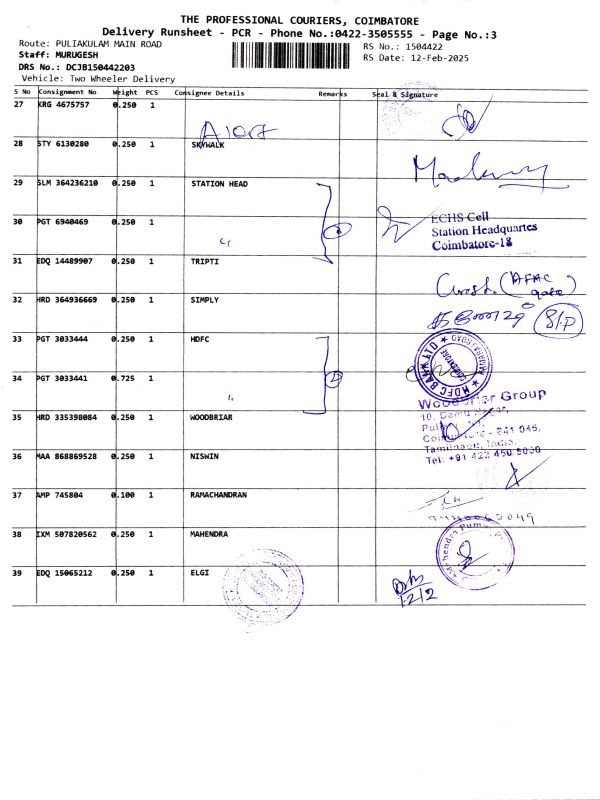 THE PROFESSIONAL COURIERS, COIMBATORE
Delivery Runsheet - PCR - Phone No.:0422-3505555 - Page No.:3
Route: PULIAKULAM MAIN ROAD
RS No.: 1504422
Staff: MURUGESH
RS Date: 12-Feb-2025
DRS No.: DCJB150442203
Vehicle: Two Wheeler Delivery
S No Consignment No Weight PCS Consignee Details Remarks Seal & Signature
27 KRG 4675757 0.250 1
28 STY 6130280 0.250 1 SKYWALK
29 SLM 364236210 0.250 1 STATION HEAD
30 PGT 6940469 0.250 1 "
ECHS Cell
Station Headquartes
Coimbatore-18
31 EDQ 14489907 0.250 1 TRIPTI
32 HRD 364936669 0.250 1 SIMPLY
33 PGT 3033444 0.250 1 HDFC
HDFC BANK LTD
COIMBATORE
34 PGT 3033441 0.725 1 "
Woodbriar Group
35 HRD 335398084 0.250 1 WOODBRIAR
Tamilnadu, India.
Tel: +91 422 450 5000
36 MAA 868869528 0.250 1 NISWIN
37 AMP 745804 0.100 1 RAMACHANDRAN
38 IXM 507820562 0.250 1 MAHENDRA
39 EDQ 15065212 0.250 1 ELGI
12/2